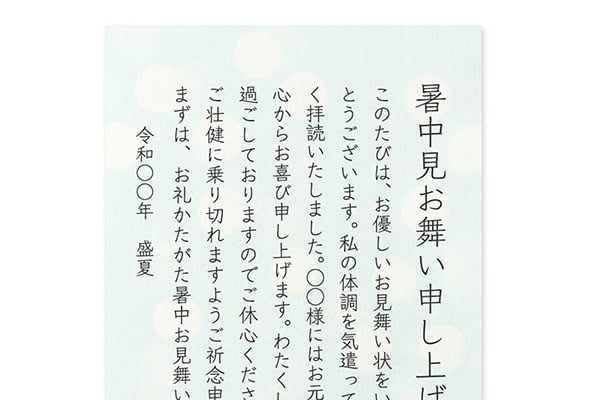 暑中見お舞い申し上げ
このたびは、お優しいお見舞い状をい
とうございます。私の体調を気遣って
く拝読いたしました。〇〇様にはお元
心からお喜び申し上げます。わたくし
過ごしておりますのでご休心くださ
ご壮健に乗り切れますようご祈念申
まずは、お礼かたがた暑中お見舞い
令和〇〇年　盛夏